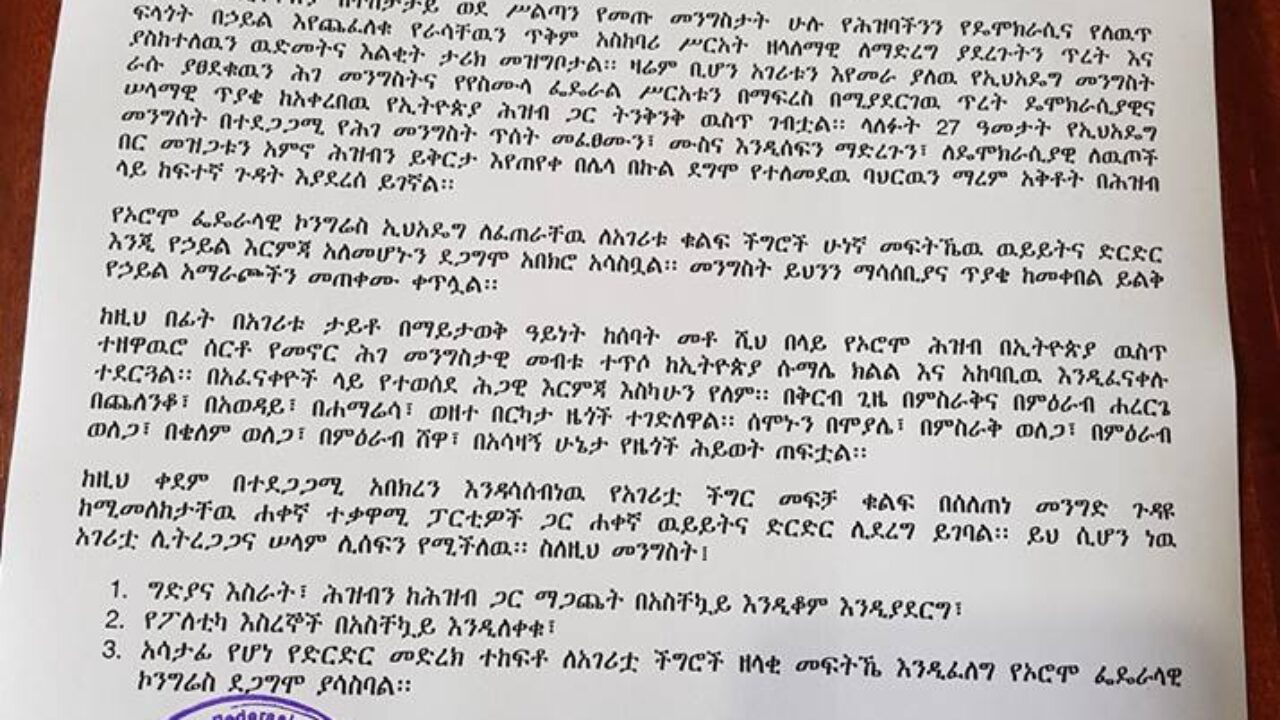 በተከታታይ ወደ ሥልጣን የመጡ መንግስታት ሁሉ የሕዝባችንን የዴሞክራሲና የለዉጥ
ፍላጎት በኃይል እየጨፈለቁ የራሳቸዉን ጥቅም አስከባሪ ሥርአት ዘላለማዊ ለማድረግ ያደረጉትን ጥረት እና
ያስከተለዉን ዉድመትና እልቂት ታሪክ መዝግቦታል፡፡ ዛሬም ቢሆን አገሪቱን እየመራ ያለዉ የኢህአዴግ መንግስት
ራሱ ያፀደቁዉን ሕገ መንግስትና የየስሙላ ፌዴራል ሥርአቱን በማፍረስ በሚያደርገዉ ጥረት ዴሞክራሲያዊና
ሠላማዊ ጥያቄ ከአቀረበዉ የኢትዮጵያ ሕዝብ ጋር ትንቅንቅ ዉስጥ ገብቷል፡፡ ላለፉት 27 ዓመታት የኢህአዴግ
መንግስት በተደጋጋሚ የሕገ መንግስት ጥሰት መፈፀሙን፣ ሙስና እንዲሰፍን ማድረጉን፣ ለዴሞክራሲያዊ ለዉጦች
በር መዝጋቱን አምኖ ሕዝብን ይቅርታ እየጠየቀ በሌላ በኩል ደግሞ የተለመደዉ ባህርዉን ማረም አቅቶት በሕዝብ
ላይ ከፍተኛ ጉዳት እያደረሰ ይገኛል፡፡
የኦሮሞ ፌዴራላዊ ኮንግሬስ ኢህአዴግ ለፈጠራቸዉ ለአገሪቱ ቁልፍ ችግሮች ሁነኛ መፍትኼዉ ዉይይትና ድርድር
እንጂ የኃይል እርምጃ አለመሆኑን ደጋግሞ አበክሮ አሳስቧል፡፡ መንግስት ይህንን ማሳሰቢያና ጥያቄ ከመቀበል ይልቅ
የኃይል አማራጮችን መጠቀሙ ቀጥሏል፡፡
ከዚህ በፊት በአገሪቱ ታይቶ በማይታወቅ ዓይነት ከሰባት መቶ ሺህ በላይ የኦሮሞ ሕዝብ በኢትዮጵያ ዉስጥ
ተዘዋዉሮ ሰርቶ የመኖር ሕገ መንግስታዊ መብቱ ተጥሶ ከኢትዮጵያ ሱማሌ ክልል እና አከባቢዉ እንዲፈናቀሉ
ተደርጓል፡፡ በአፈናቀዮች ላይ የተወሰደ ሕጋዊ እርምጃ እስካሁን የለም፡፡ በቅርብ ጊዜ በምስራቅና በምዕራብ ሐረርጌ
በጨለንቆ፣ በአወዳይ፣ በሐማሬሳ፣ ወዘተ በርካታ ዜጎች ተገድለዋል፡፡ ሰሞኑን በሞያሌ፣ በምስራቅ ወለጋ፣ በምዕራብ
ወለጋ፣ በቄለም ወለጋ፣ በምዕራብ ሸዋ፣ በአሳዛኝ ሁኔታ የዜጎች ሕይወት ጠፍቷል፡፡
ከዚህ ቀደም በተደጋጋሚ አበክረን እንዳሳሰብነዉ የአገሪቷ ችግር መፍቻ ቁልፍ በሰለጠነ መንግድ ጉዳዩ
ከሚመለከታቸዉ ሐቀኛ ተቃዋሚ ፓርቲዎች ጋር ሐቀኛ ዉይይትና ድርድር ሊደረግ ይገባል፡፡ ይህ ሲሆን ነዉ
አገሪቷ ሊትረጋጋና ሠላም ሊሰፍን የሚችለዉ፡፡ ስለዚህ መንግስት፤
1. ግድያና እስራት፣ ሕዝብን ከሕዝብ ጋር ማጋጨት በአስቸኳይ እንዲቆም እንዲያደርግ፣
2. የፖለቲካ እስረኞች በአስቸኳይ እንዲለቀቁ፣
3. አሳታፊ የሆነ የድርድር መድረክ ተከፍቶ ለአገሪቷ ችግሮች ዘላቂ መፍትኼ እንዲፈለግ የኦሮሞ ፌዴራላዊ
ኮንግሬስ ደጋግሞ ያሳስባል፡፡